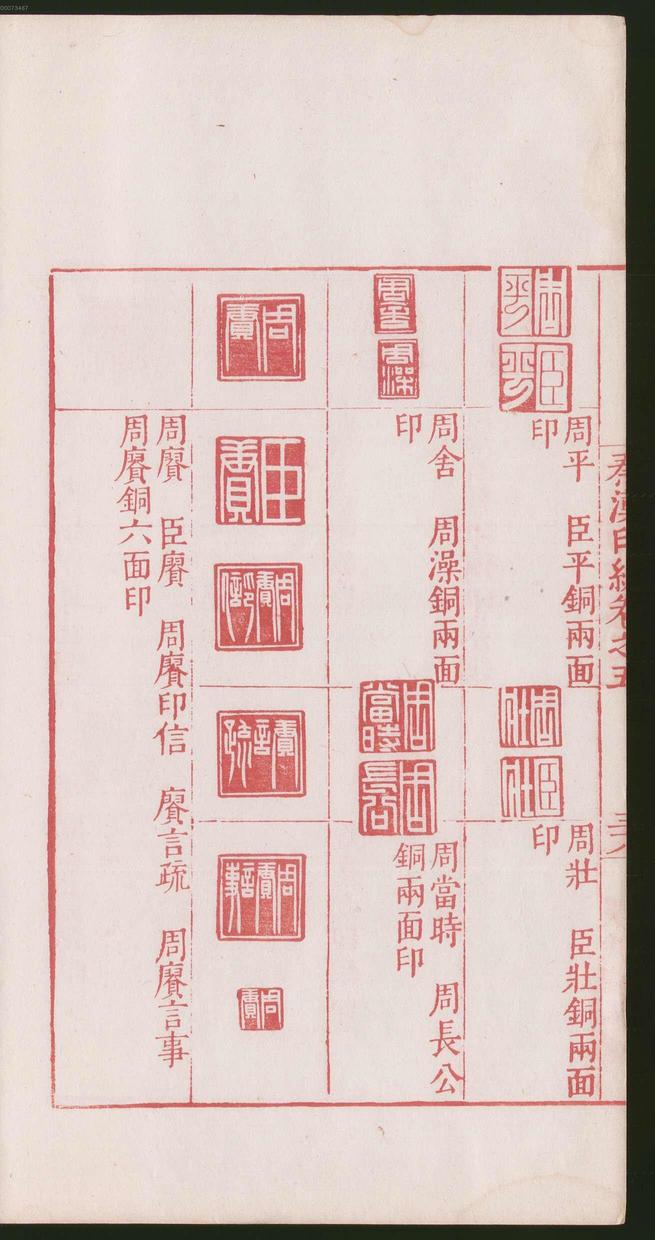 00073467
秦漢印統卷之五
周平　臣平銅兩面
印
周壯　臣壯銅兩面
印
周舍　周澡銅兩面
印
周當時　周長公
銅兩面印
周賡　臣賡　周賡印信　賡言疏　周賡言事
周賡銅六面印